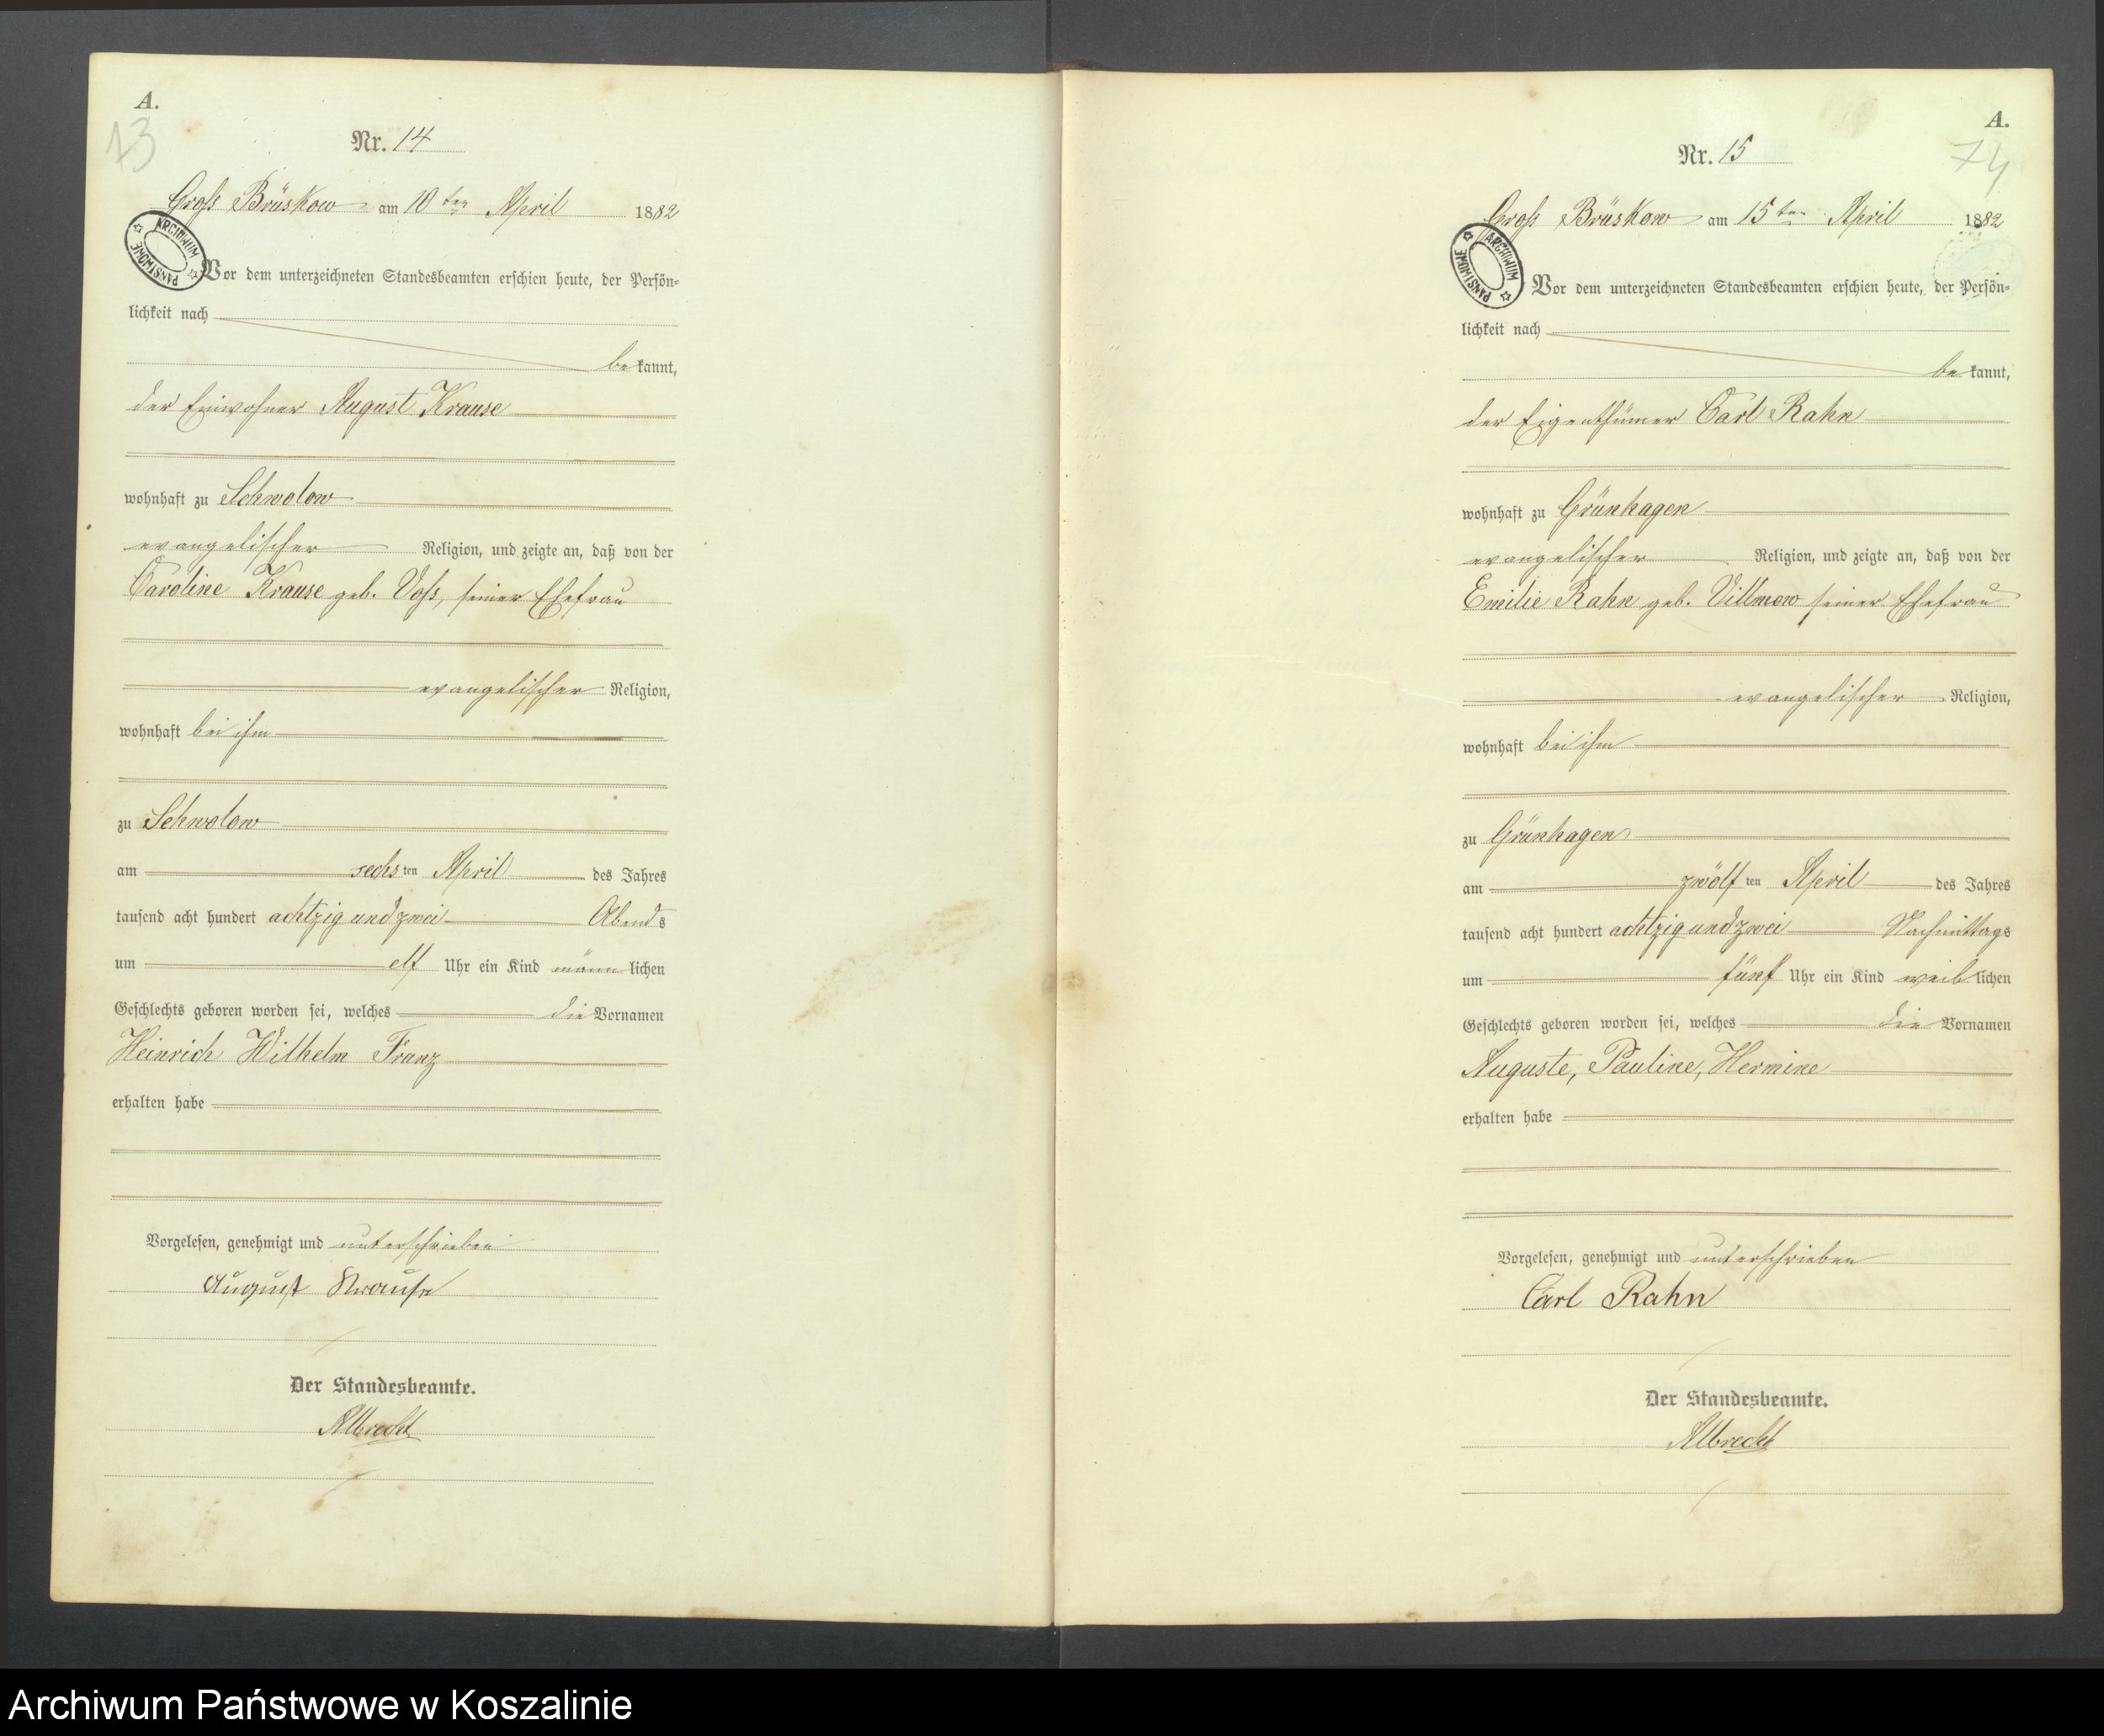 A.
13
Nr. 14
Groß Brüskow am 10ten April 1882
ARCHIWUM PAŃSTWOWE
Vor dem unterzeichneten Standesbeamten erschien heute, der Persön-
lichkeit nach
be kannt,
der Einwohner August Krause
wohnhaft zu Schwolow
evangelischer Religion, und zeigte an, daß von der
Caroline Krause geb. Voß, seiner Ehefrau
evangelischer Religion,
wohnhaft bei ihm
zu Schwolow
am sechs ten April des Jahres
tausend acht hundert achtzig und zwei Abends
um elf Uhr ein Kind männ lichen
Geschlechts geboren worden sei, welches die Vornamen
Heinrich Wilhelm Franz
erhalten habe
Vorgelesen, genehmigt und unterschrieben
August Krause
Der Standesbeamte.
Albrecht
A.
74
Nr. 15
Groß Brüskow am 15ten April 1882
ARCHIWUM PAŃSTWOWE
Vor dem unterzeichneten Standesbeamten erschien heute, der Persön-
lichkeit nach
be kannt,
der Eigenthümer Carl Rahn
wohnhaft zu Grünhagen
evangelischer Religion, und zeigte an, daß von der
Emilie Rahn geb. Villmow seiner Ehefrau
evangelischer Religion,
wohnhaft bei ihm
zu Grünhagen
am zwölf ten April des Jahres
tausend acht hundert achtzig und zwei Nachmittags
um fünf Uhr ein Kind weib lichen
Geschlechts geboren worden sei, welches die Vornamen
Auguste, Pauline, Hermine
erhalten habe
Vorgelesen, genehmigt und unterschrieben
Carl Rahn
Der Standesbeamte.
Albrecht
Archiwum Państwowe w Koszalinie